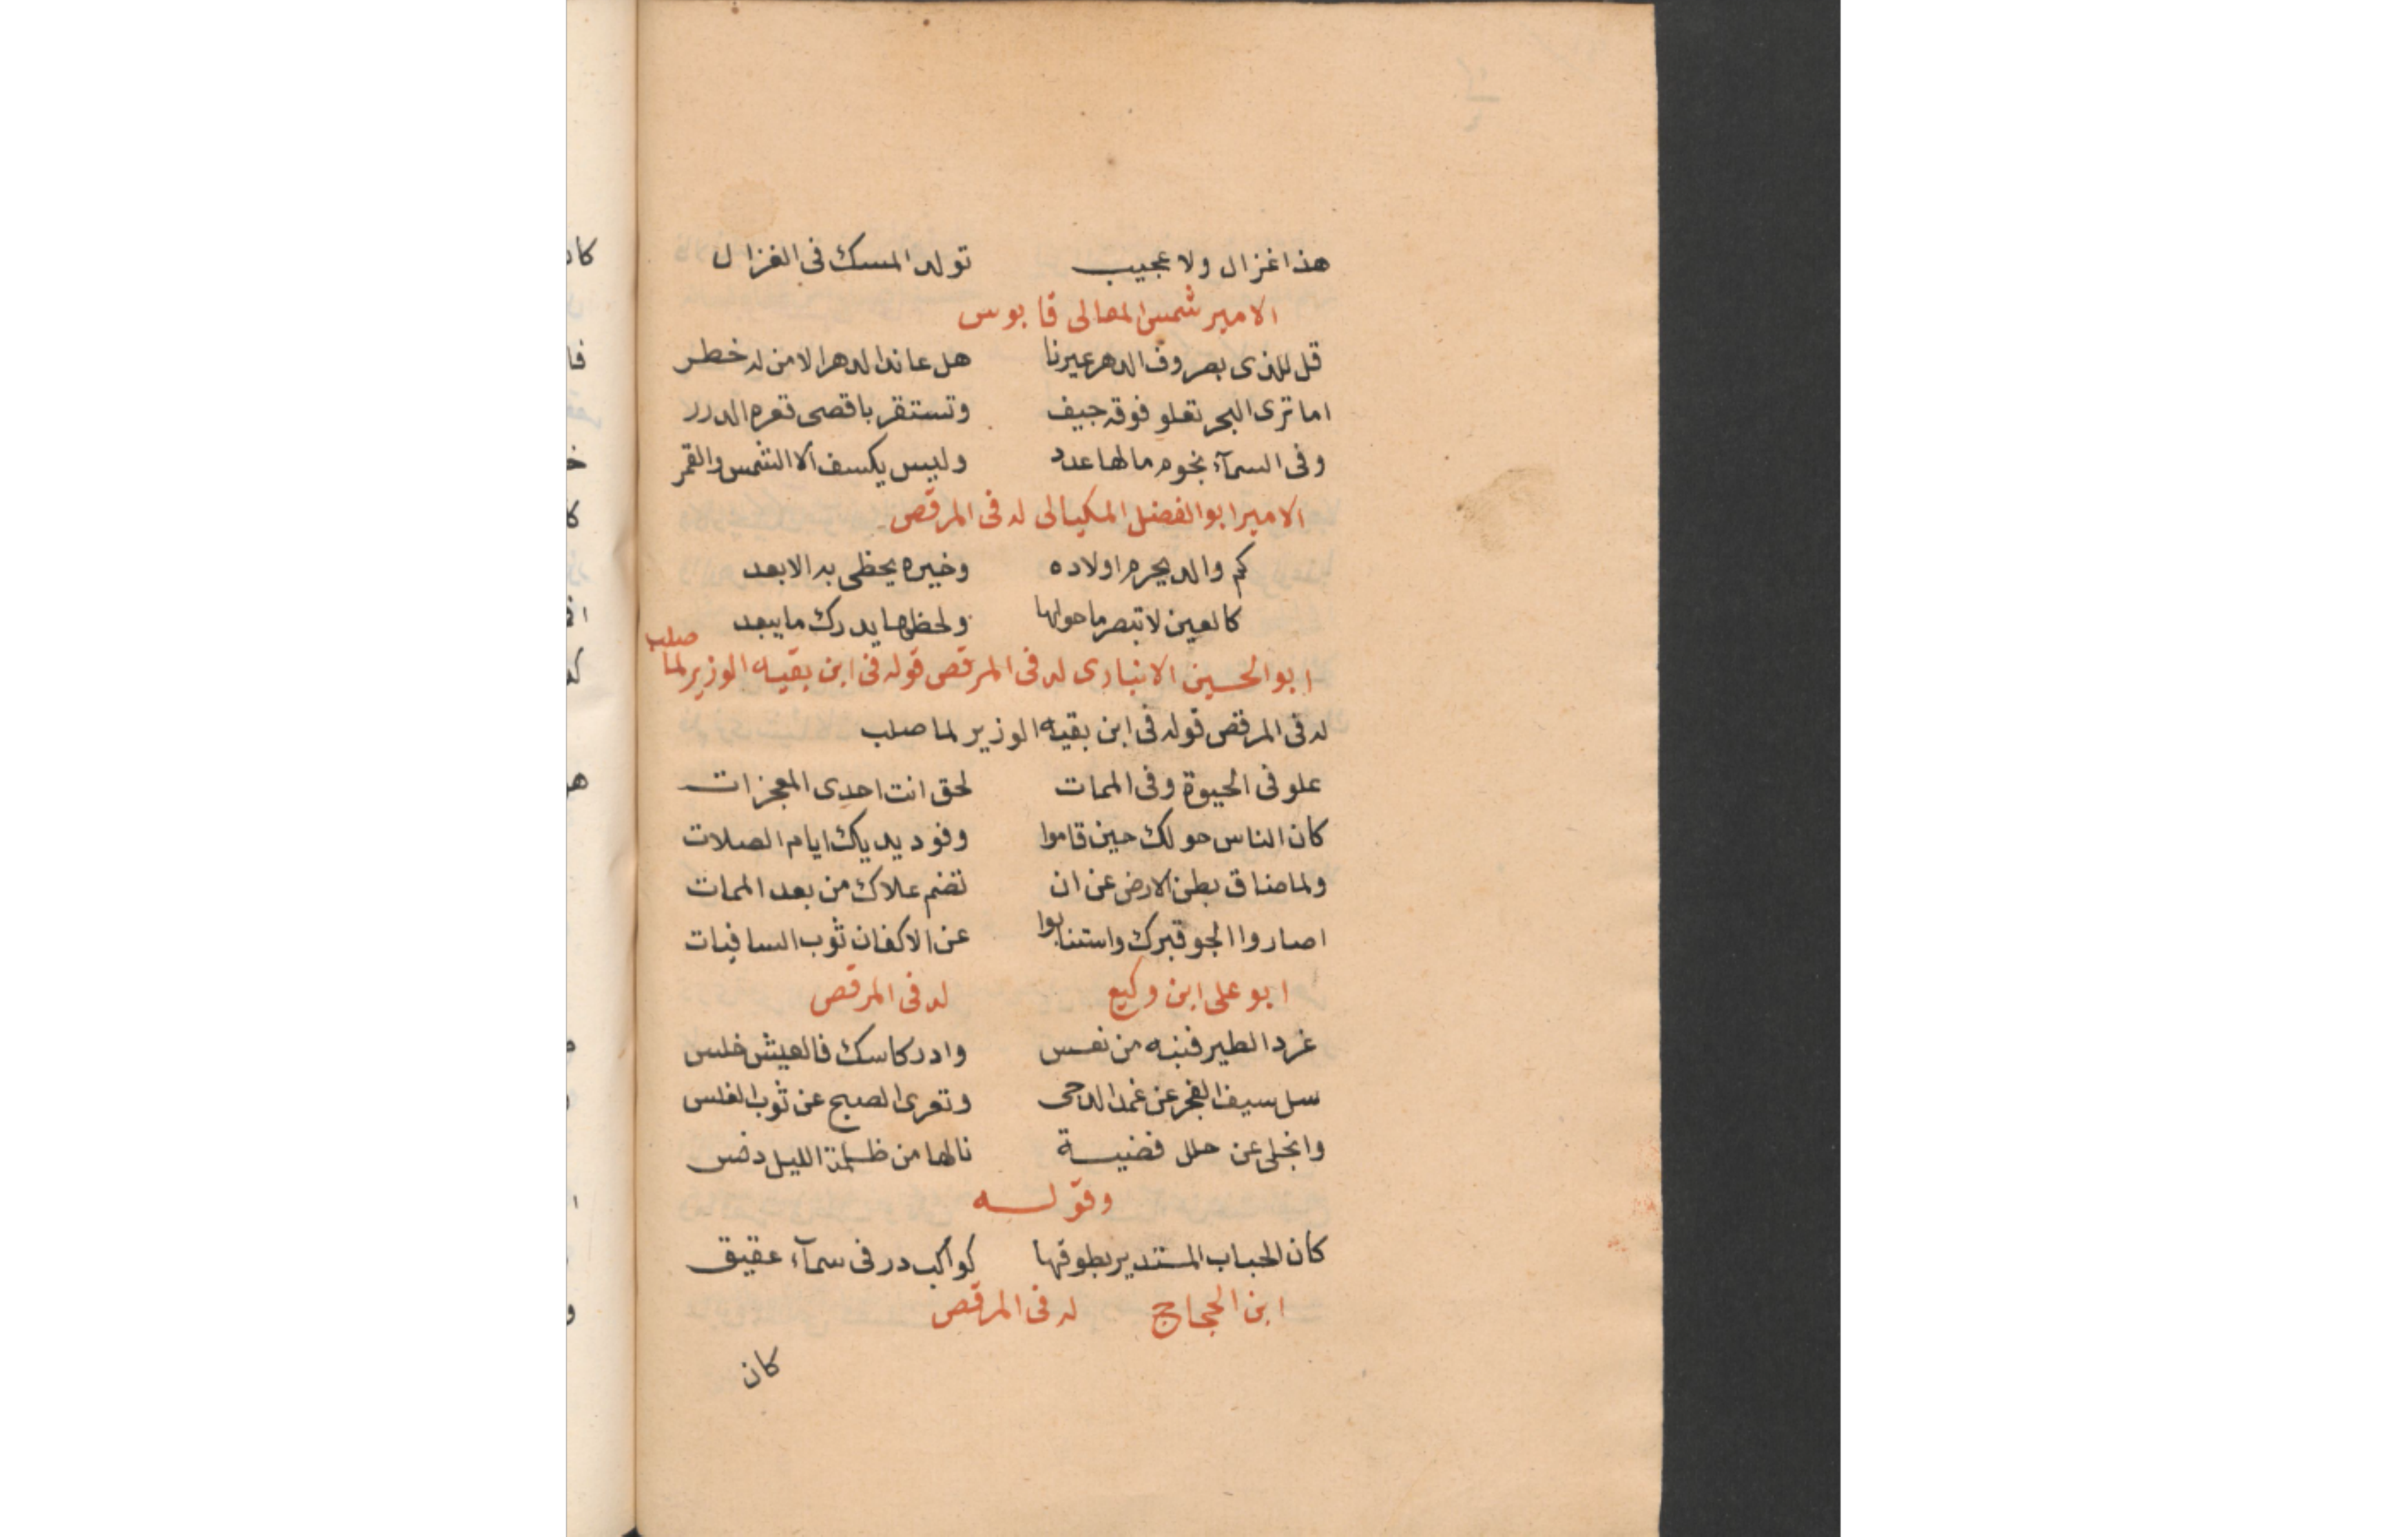 هذا غزال ولا عجيب تولد المسك فى الغزال
الامير شمس المعالى قابوس
قل للذى بصروف الدهر عيرنا هل عاند الدهر الا من له خطر
اما ترى البحر تعلو فوقه جيف وتستقر باقصى قعره الدرر
وفى السمآء نجوم مالها عدد وليس يكسف الا الشمس والقمر
الامير ابو الفضل المكيالى له فى المرقص
كم والد يحرم اولاده وخيره يحظى به الابعد
كالعين لا تبصر ما حولها ولحظها يدرك ما يبعد
ابو الحسين الانبارى له فى المرقص قوله فى ابن بقيه الوزير لما صلب
له فى المرقص قوله فى ابن بقيه الوزير لما صلب
علو فى الحيوة وفى الممات لحق انت احدى المعجزات
كان الناس حولك حين قاموا وفود يدياك ايام الصلات
ولما ضاق بطن الارض عن ان تضم علاك من بعد الممات
اصاروا الجو قبرك واستنابوا عن الاكفان ثوب السافيات
ابو على ابن وكيع له فى المرقص
غرد الطير فنبه من نعس وادر كاسك فالعيش خلس
سل سيف الفجر عن غمد الدجى وتعرى الصبح عن ثوب الغلس
وانجلى عن حلل فضية نالها من ظلمة الليل دنس
وقوله
كان الحباب المستدير بطوقها كواكب در فى سمآء عقيق
ابن الحجاج له فى المرقص
كان